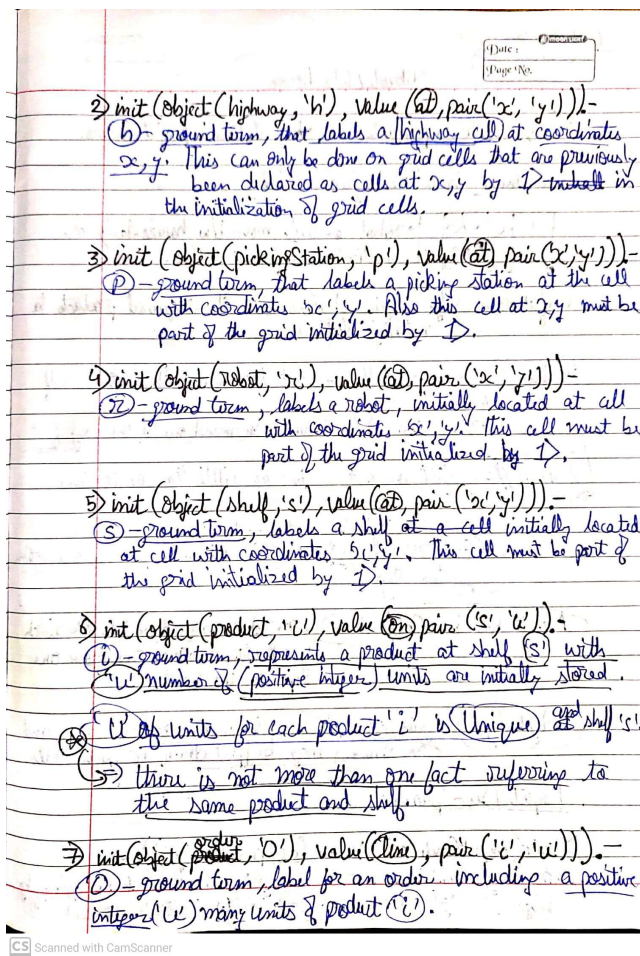 Date :
Page No.
2) init (object (highway, 'h'), value (at, pair('x', 'y'))).-
h - ground term, that labels a highway cell at coordinates
x, y. This can only be done on grid cells that are previously
been declared as cells at x,y by 1) in
the initialization of grid cells.
3) init (object (pickingStation, 'p'), value (at, pair('x','y'))).-
p - ground term, that labels a picking station at the cell
with coordinates 'x', 'y'. Also this cell at x,y must be
part of the grid initialized by 1).
4) init (object (robot, 'r'), value (at, pair ('x', 'y')))-
r - ground term, labels a robot, initially located at cell
with coordinates 'x', 'y'. This cell must be
part of the grid initialized by 1).
5) init (object (shelf, 's'), value (at, pair ('x', 'y'))).-
s - ground term, labels a shelf at a cell initially located
at cell with coordinates 'x', 'y'. This cell must be part of
the grid initialized by 1).
6) init (object (product, 'i'), value (on, pair ('s', 'u')).-
i - ground term, represents a product at shelf 's' with
'u' number of (positive integer) units are initially stored.
'u' of units for each product 'i' is Unique and at shelf 's'
⇒ there is not more than one fact referring to
the same product and shelf.
7) init (object (product order, 'O'), value (line, pair ('i', 'u'))).-
O - ground term, label for an order including a positive
integer ('u') many units of product 'i'.
CS Scanned with CamScanner